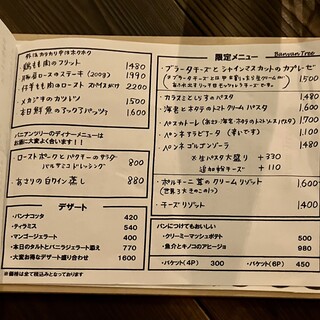 外はカリカリ中はホクホク
鶏もも肉のフリット 1480
豚肩ロースのステーキ(200g) 1990
仔羊もも肉のロースト スパイスポテ 2200
・メカジキのカツレツ 1500
・本日鮮魚のアクアパッツァ 1600
バニアンツリーのディナーメニューは
お酒に大変よく合います!!
・ローストポークとパクチーのサラダ
バルサミコドレッシング 800
・あさりの白ワイン蒸し 880
デザート
・パンナコッタ 420
・ティラミス 540
・マンゴージェラート 400
・本日のタルトとバニラジェラート添え 770
・大変お得なデザート盛り合わせ 1600
※価格は全て税込みとなっております
限定メニュー Banyan Tree
・ブラータチーズとシャインマスカットのカプレーゼ
1500
・カラスミとしらすのパスタ 1480
・海老とホタテのトマトクリームパスタ 1680
・ペスカトーレ 1700
・ペンネアラビアータ (辛いです) 1100
・ペンネゴルゴンゾーラ 1480
大生パスタ大盛り +330
追加粉チーズ +110
・ポルチーニ茸のクリームリゾット 1600
(世界3大きのこの1つ)
・チーズリゾット 1400
パンにつけてもおいしい
・クリーミーマッシュポテト 500
・魚介とキノコのアヒージョ 980
・バケット(4P) 300 ・バケット(6P) 450